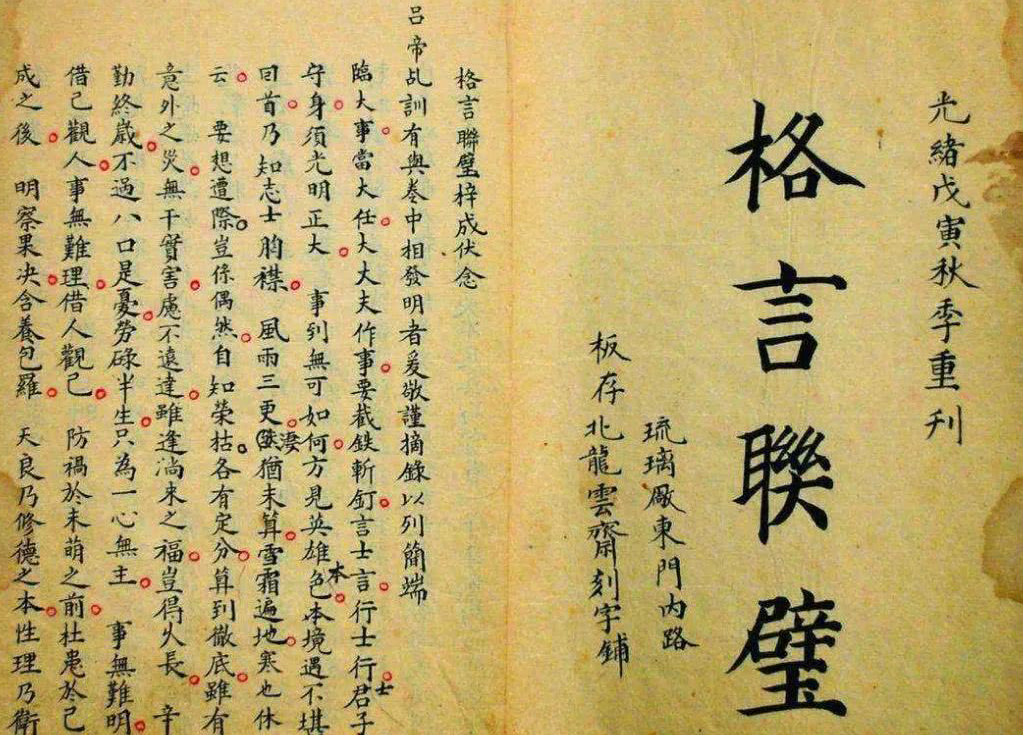 光緒戊寅秋季重刊
格言聯璧
琉璃厰東門內路
板存北龍雲齋刻字鋪
格言聯璧梓成伏念
呂帝乩訓有與卷中相發明者爰敬謹摘錄以列簡端
臨大事當大任大大夫作事要截鉄斬釘言士言行士行君子
士
守身須光明正大 事到無可如何方見英雄色本境遇不堪
本
回首乃知志士胸襟 風雨三更猶未算雪霜遍地寒也休
淒
云 要想遭際豈係偶然自知榮枯各有定分算到徹底雖有
意外之災無干實害慮不遠達雖逢淌来之福豈得久長 辛
勤終歲不過八口是憂勞碌半生只為一心無主 事無難明
借己觀人事無難理借人觀己 防禍於未萌之前杜患於己
成之後 明察果决含養包羅 天良乃修德之本性理乃衛